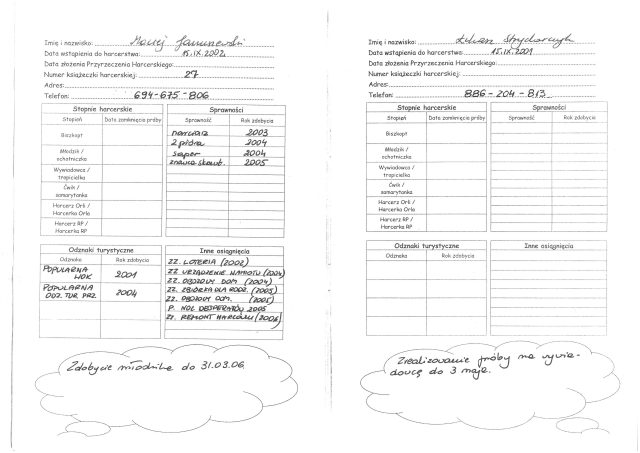 Imię i nazwisko: Maciej Januszewski
Data wstąpienia do harcerstwa: 15.IX.2002
Data złożenia Przyrzeczenia Harcerskiego:
Numer książeczki harcerskiej: 27
Adres:
Telefon: 694-675-806
Stopnie harcerskie Sprawności
Stopień Data zamknięcia próby Sprawność Rok zdobycia
Biszkopt
narciarz 2003
2 pióra 2004
saper 2004
znawca skaut. 2005
Młodzik / ochotniczka
Wywiadowca / tropicielka
Ćwik / samarytanka
Harcerz Orli / Harcerka Orla
Harcerz RP / Harcerka RP
Odznaki turystyczne Inne osiągnięcia
Odznaka Rok zdobycia
POPULARNA WOK 2001
POPULARNA ODZ. TUR. PRZ. 2004
ZZ. LOTERIA (2002)
ZZ URZĄDZENIE NAMIOTU (2004)
ZZ. OBOZOWY DOM (2004)
ZZ. ZBIÓRKA DLA RODZ. (2005)
ZZ. OBOZOWY DOM. (2005)
P. NOC DESPERATÓW 2005
ZZ. REMONT HARCÓWKI (2006)
Zdobycie młodzika do 31.03.06.
Imię i nazwisko:
Data wstąpienia do harcerstwa: 15.IX.2001
Data złożenia Przyrzeczenia Harcerskiego:
Numer książeczki harcerskiej:
Adres:
Telefon: 886-204-813
Stopnie harcerskie Sprawności
Stopień Data zamknięcia próby Sprawność Rok zdobycia
Biszkopt
Młodzik / ochotniczka
Wywiadowca / tropicielka
Ćwik / samarytanka
Harcerz Orli / Harcerka Orla
Harcerz RP / Harcerka RP
Odznaki turystyczne Inne osiągnięcia
Odznaka Rok zdobycia
Zrealizowanie próby na wywia-
dowcę do 3 maja.